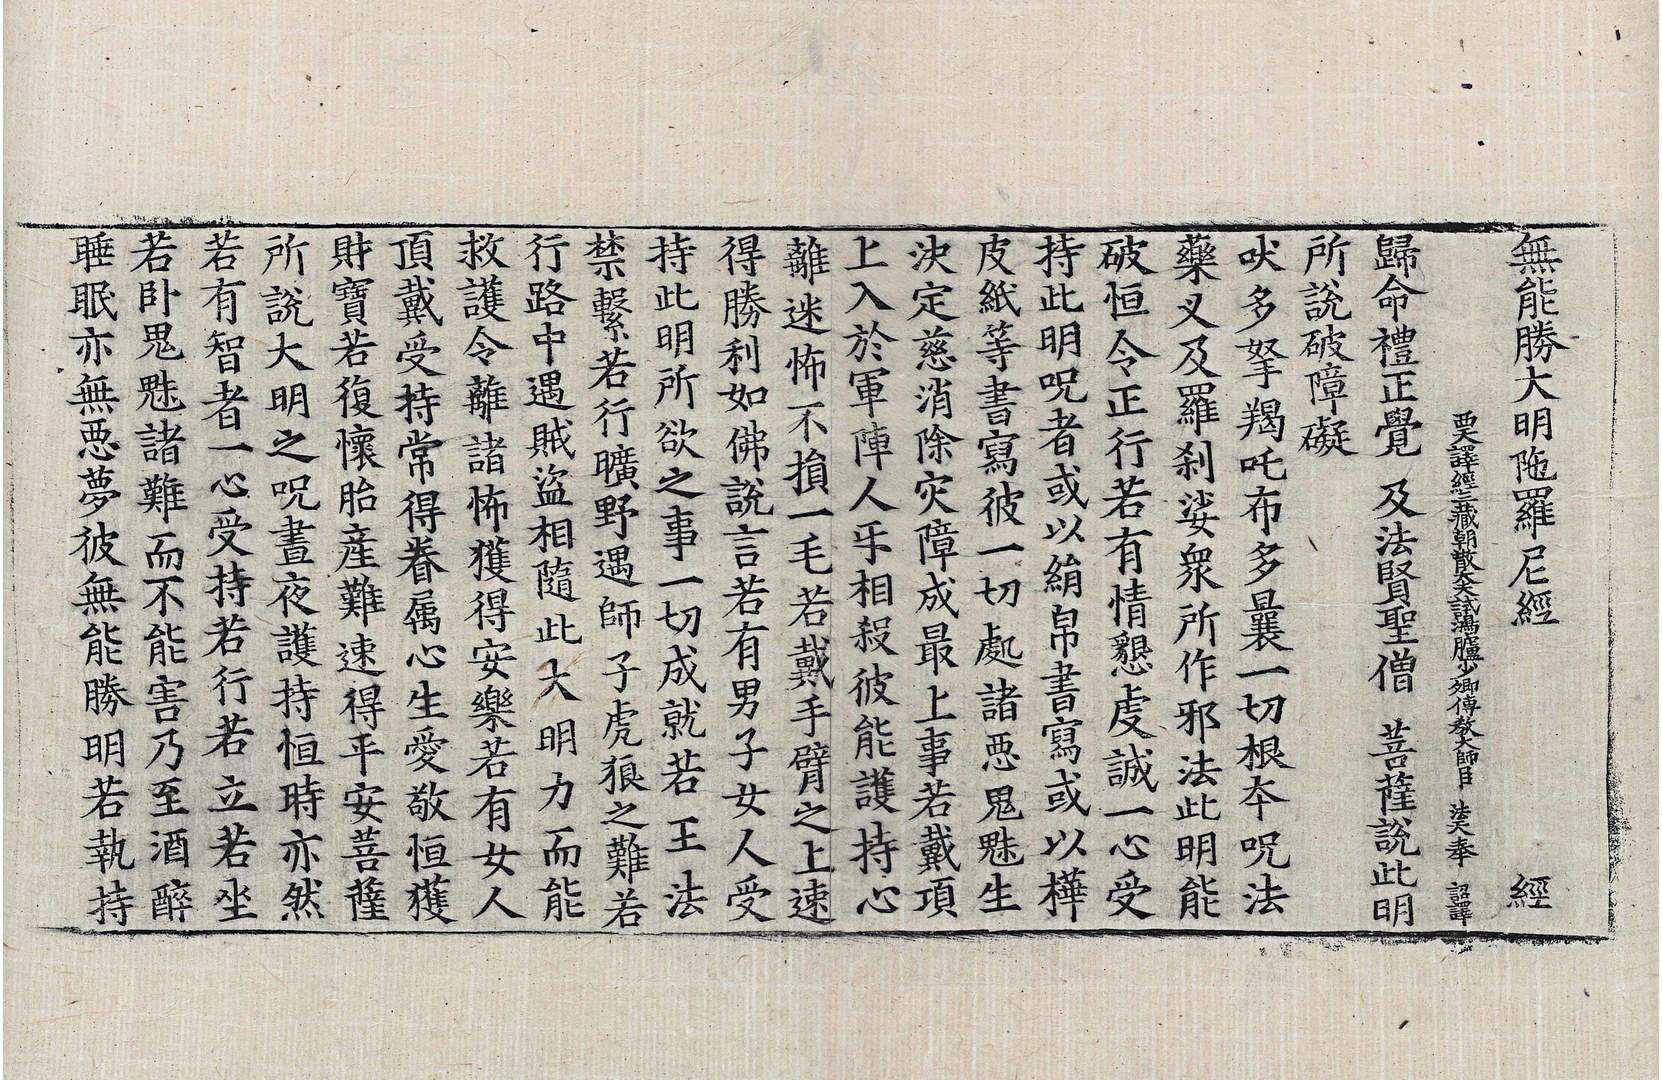 無能勝大明陁羅尼經 經
西天譯經三藏朝散大夫試鴻臚少卿傳教大師臣 法天奉 詔譯
歸命禮正覺 及法賢聖僧 菩薩說此明
所說破障礙
吠多拏羯吒布多曩一切根本呪法
藥叉及羅刹娑眾所作邪法此明能
破恒令正行若有情懇虔誠一心受
持此明呪者或以絹帛書寫或以樺
皮紙等書寫彼一切處諸惡鬼魅生
決定慈消除灾障成最上事若戴項
上入於軍陣人乎相殺彼能護持心
離迷怖不損一毛若戴手臂之上速
得勝利如佛說言若有男子女人受
持此明所欲之事一切成就若王法
禁繫若行曠野遇師子虎狼之難若
行路中遇賊盜相隨此大明力而能
救護令離諸怖獲得安樂若有女人
頂戴受持常得眷属心生愛敬恒獲
財寶若復懷胎產難速得平安菩薩
所說大明之呪晝夜護持恒時亦然
若有智者一心受持若行若立若坐
若卧鬼魅諸難而不能害乃至酒醉
睡眠亦無惡夢彼無能勝明若執持